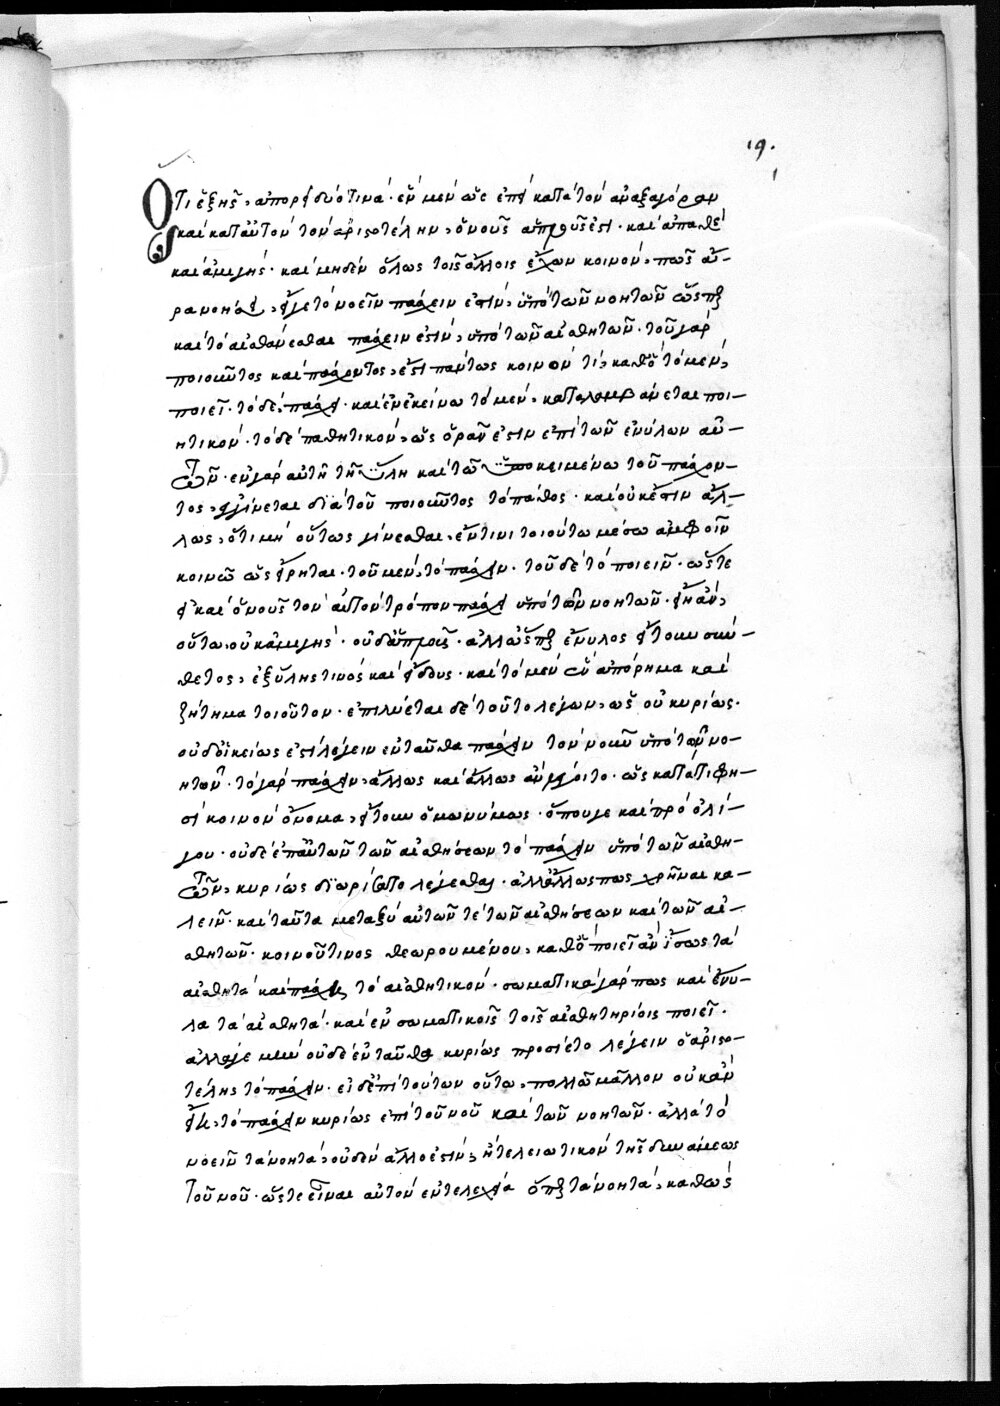 19.
Ὅτι ἑξῆς, ἀπορεῖ δύο τινά· ἓν μὲν ὡς ἐπεὶ κατὰ τὸν ἀναξαγόραν
καὶ κατ' αὐτὸν τὸν ἀριστοτέλην, ὁ νοῦς ἁπλοῦς ἐστι· καὶ ἀπαθὴς
καὶ ἀμιγής· καὶ μηδὲν ὅλως τοῖς ἄλλοις ἔχων κοινόν, πῶς ἄ-
ρα νοήσει, εἴγε τὸ νοεῖν πάσχειν ἐστίν, ὑπὸ τῶν νοητῶν ὥσπερ
καὶ τὸ αἰσθάνεσθαι πάσχειν ἐστίν, ὑπὸ τῶν αἰσθητῶν· τοῦ γὰρ
ποιοῦντος καὶ πάσχοντος, ἔστι πάντως κοινόν τι, καθ' ὃ τὸ μὲν,
ποιεῖ· τὸ δὲ, πάσχει· καὶ ἐν ἐκείνω τὸ μὲν, καταλαμβάνεται ποι-
ητικόν· τὸ δὲ παθητικόν, ὡς ὁρᾶν ἐστιν ἐπὶ τῶν ἐνύλων αὐ-
τῶν· ἐν γὰρ αὐτῆ τῆ ὕλη καὶ τῶ ὑποκειμένω τοῦ πάσχον-
τος, γίνεται διὰ τοῦ ποιοῦντος τὸ πάθος· καὶ οὐκ ἔστιν ἄλ-
λως, ὅτι μὴ οὕτως γίνεσθαι, ἔν τινι τοιούτω μέσω ἀμφοῖν
κοινῶ ὡς εἴρηται· τοῦ μὲν, τὸ πάσχειν· τοῦ δὲ τὸ ποιεῖν· ὥστε
εἰ καὶ ὁ νοῦς τὸν αὐτὸν τρόπον πάσχει ὑπὸ τῶν νοητῶν· εἴη ἂν,
οὕτω, οὐκ ἀμιγής· οὐδ' ἁπλοῦς· ἀλλ' ὥσπερ ἔνυλος ἤτουν σύν-
θετος, ἐξ ὕλης τινὸς καὶ εἴδους· καὶ τὸ μὲν ἓν ἀπόρημα καὶ
ζήτημα τοιοῦτον· ἐπιλύεται δὲ τοῦτο λέγων, ὡς οὐ κυρίως·
οὐδ' οἰκείως ἐστὶ λέγειν ἐνταῦθα πάσχειν τὸν νοῦν ὑπὸ τῶν νο-
ητῶν· τὸ γὰρ πάσχειν, ἄλλως καὶ ἄλλως ἂν λέγοιτο· ὡς κατά τι φη-
σὶ κοινὸν ὄνομα, ἤτουν ὁμωνύμως· ὅπου γε καὶ πρὸ ὀλί-
γου· οὐδὲ ἐπ' αὐτῶν τῶν αἰσθήσεων τὸ πάσχειν ὑπὸ τῶν αἰσθη-
τῶν, κυρίως διωρίσατο λέγεσθαι· ἀλλ' ἄλλως πως χρῆναι κα-
λεῖν· καὶ ταῦτα μεταξὺ αὐτῶν τε τῶν αἰσθήσεων καὶ τῶν αἰ-
σθητῶν· κοινοῦ τινος θεωρουμένου, καθ' ὃ ποιεῖ ἂν ἴσως τὰ
αἰσθητὰ καὶ πάσχει τὸ αἰσθητικόν· σωματικὰ γάρ πως καὶ ἔνυ-
λα τὰ αἰσθητά· καὶ ἐν σωματικοῖς τοῖς αἰσθητηρίοις ποιεῖ·
ἀλλά γε μὴν οὐδὲ ἐνταῦθα κυρίως προσίετο λέγειν ὁ ἀριστο-
τέλης τὸ πάσχειν· εἰ δ' ἐπὶ τούτων οὕτω, πολλῶ μᾶλλον οὐκ ἂν
εἴη, τὸ πάσχειν κυρίως ἐπὶ τοῦ νοῦ καὶ τῶν νοητῶν· ἀλλὰ τὸ
νοεῖν τὰ νοητὰ, οὐδὲν ἄλλο ἐστὶν, ἢ τελειωτικὸν τῆς δυνάμεως
τοῦ νοῦ· ὥστε εἶναι αὐτὸν ἐντελεχεία ὅπερ τὰ νοητὰ, καθὼς